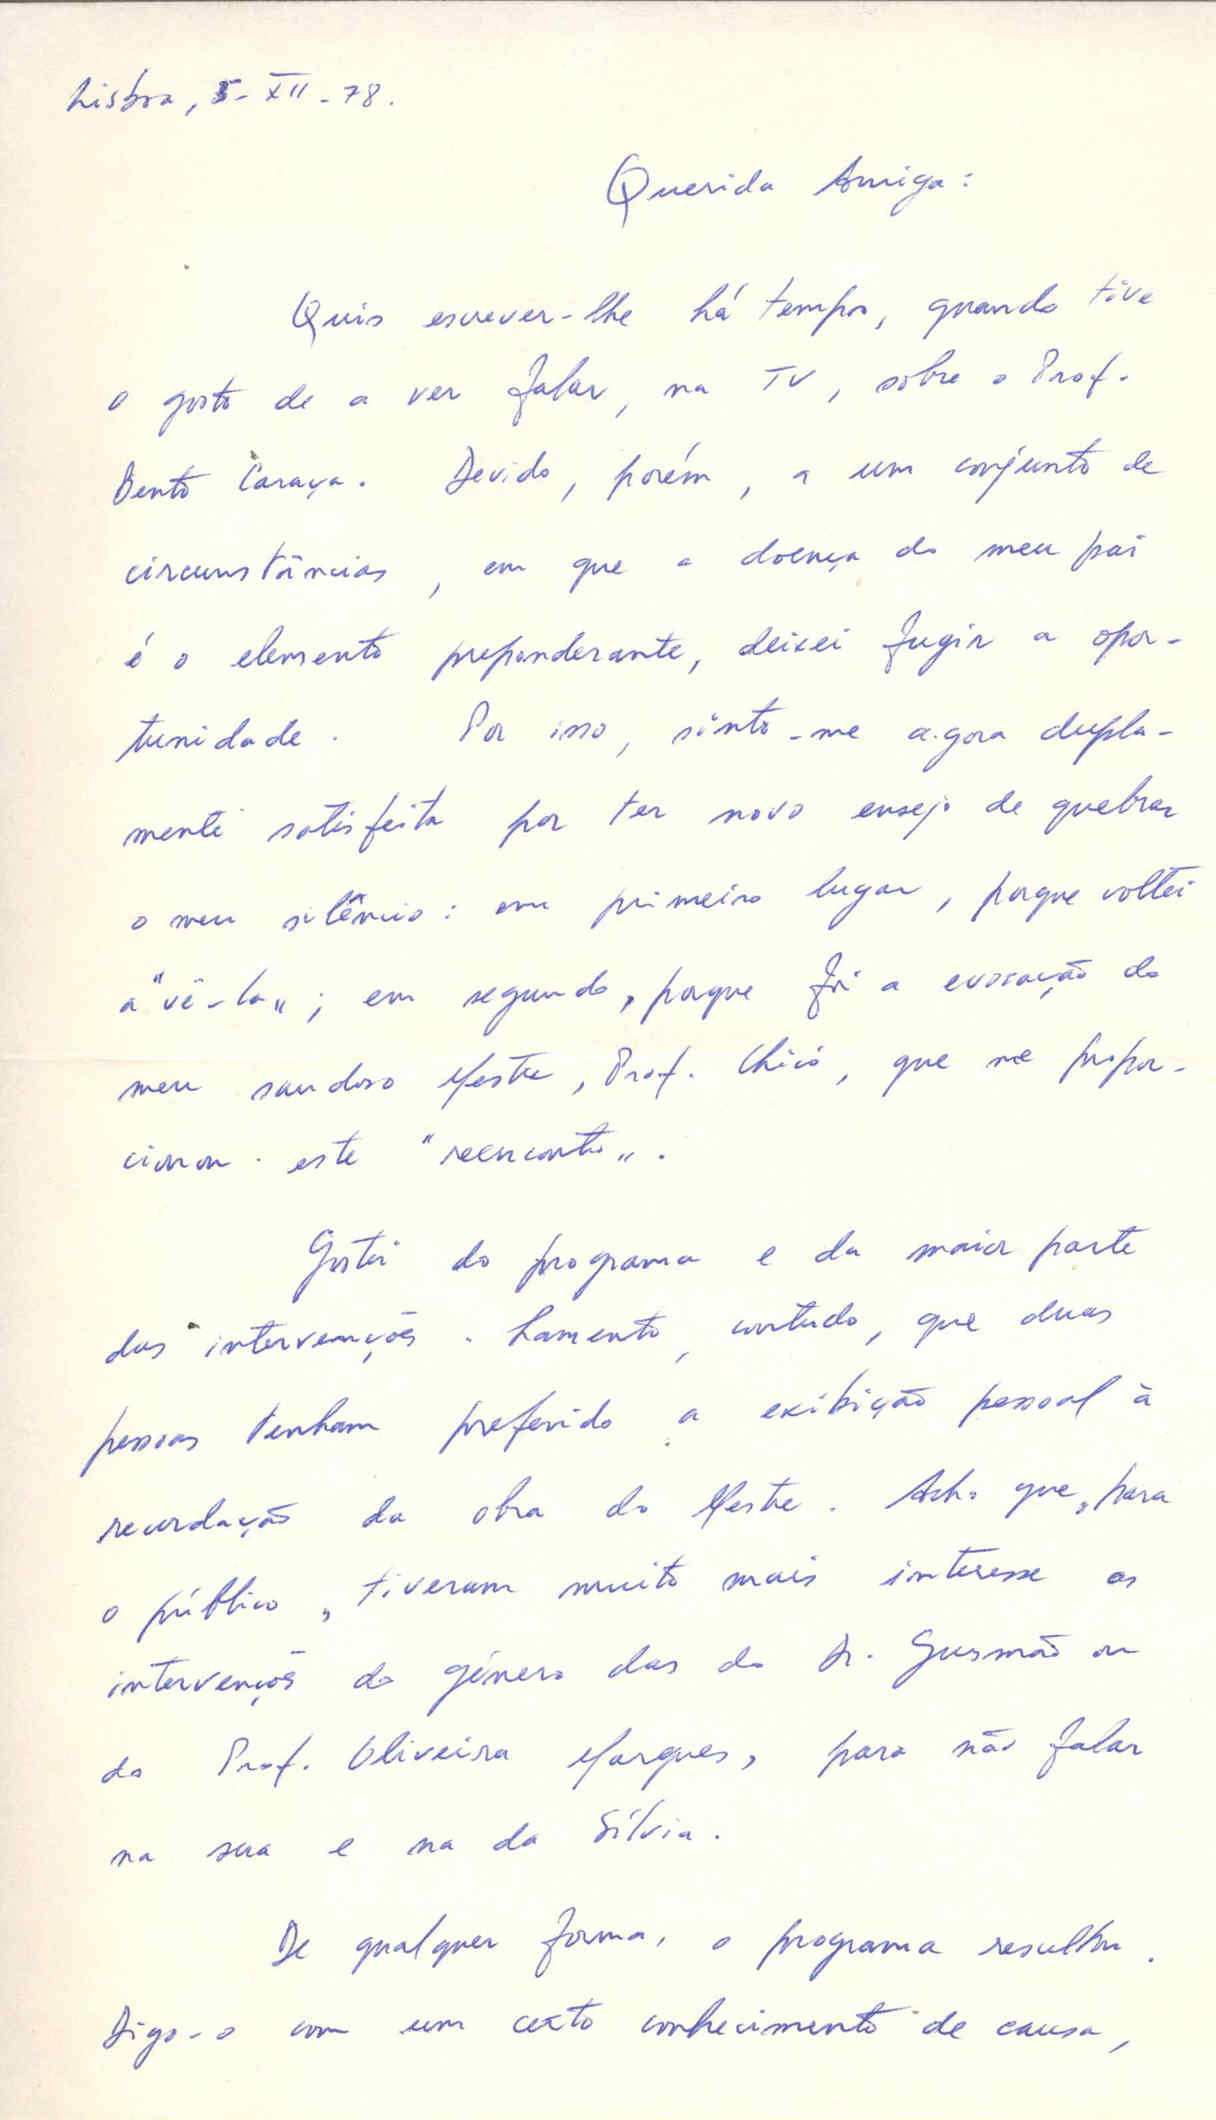 Lisboa, 5-XII-78.
Querida Amiga:
Quis escrever-lhe há tempos, quando tive
o gosto de a ver falar, na TV, sobre o Prof.
Bento Caraça. Devido, porém, a um conjunto de
circunstâncias, em que a doença do meu pai
é o elemento preponderante, deixei fugir a opor-
tunidade. Por isso, sinto-me agora dupla-
mente satisfeita por ter novo ensejo de quebrar
o meu silêncio: em primeiro lugar, porque voltei
a "vê-la"; em segundo, porque foi a evocação do
meu saudoso Mestre, Prof. Chicó, que me propor-
cionou este "reencontro".
Gostei do programa e da maior parte
das intervenções. Lamento, contudo, que duas
pessoas tenham preferido a exibição pessoal à
recordação da obra do Mestre. Acho que, para
o público, tiveram muito mais interesse as
intervenções do género das do Dr. Gusmão ou
do Prof. Oliveira Marques, para não falar
na sua e na da Sílvia.
De qualquer forma, o programa resultou.
Digo-o com um certo conhecimento de causa,